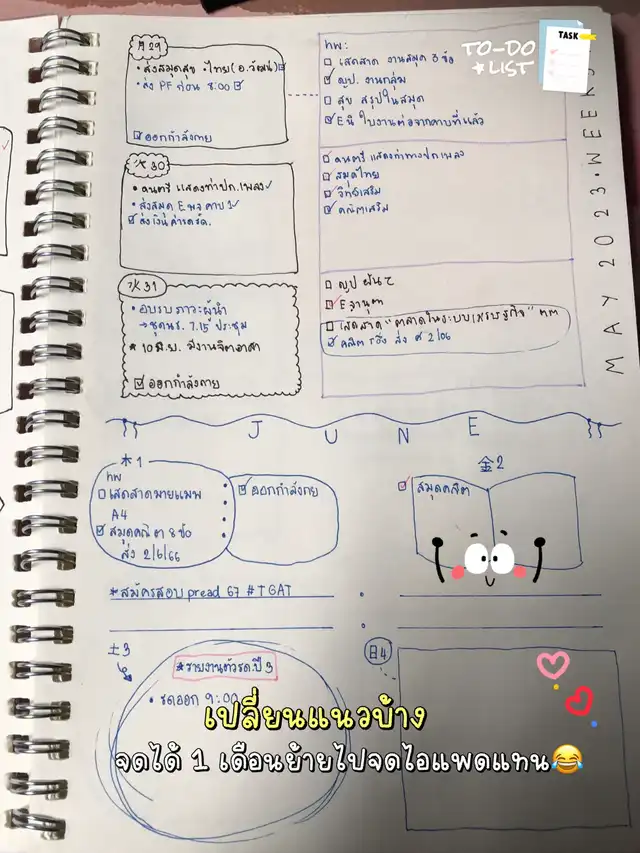 月29
• ส่งสมุดสุข • ไทย(อ.วัฒน์)
• ส่ง PF ก่อน 8:00
ออกกำลังกาย
hw:
เสดสาด งานสมุด 3 ข้อ
ญป. งานกลุ่ม
สุข สรุปในสมุด
TO-DO
LIST
TASK
30
• ดนตรี แสดงท่าปก.เพลง
• ส่งสมุด E
ดนตรี แสดงท่าทางปก.เพลง
สมุดไทย
วิทย์เสริม
คณิตเสริม
MAY 2023 • WEEK
水31
• อบรบภาวะผู้นำ
→ชุดนร. 7.15 ประชุม
* 10 มิ.ย. มีงานจิตอาสา
ออกกำลังกาย
ญป
เสดสาด "ตลาดในระบบเศรษฐกิจ"
ส่ง 2/06
JUNE
木1
hw
เสดสาดมายแมพ
A4
สมุดคณิต 8 ข้อ
ส่ง 2/6/66
ออกกำลังกาย
金2
สมุดคณิต
*สมัครสอบ pread 67 #TGAT
土3
*รายงานตัวรด.ปี 3
• รดออก 9:00
日4
เปลี่ยนแนวบ้าง
จดได้ 1 เดือนย้ายไปจดไอแพดแทน😂